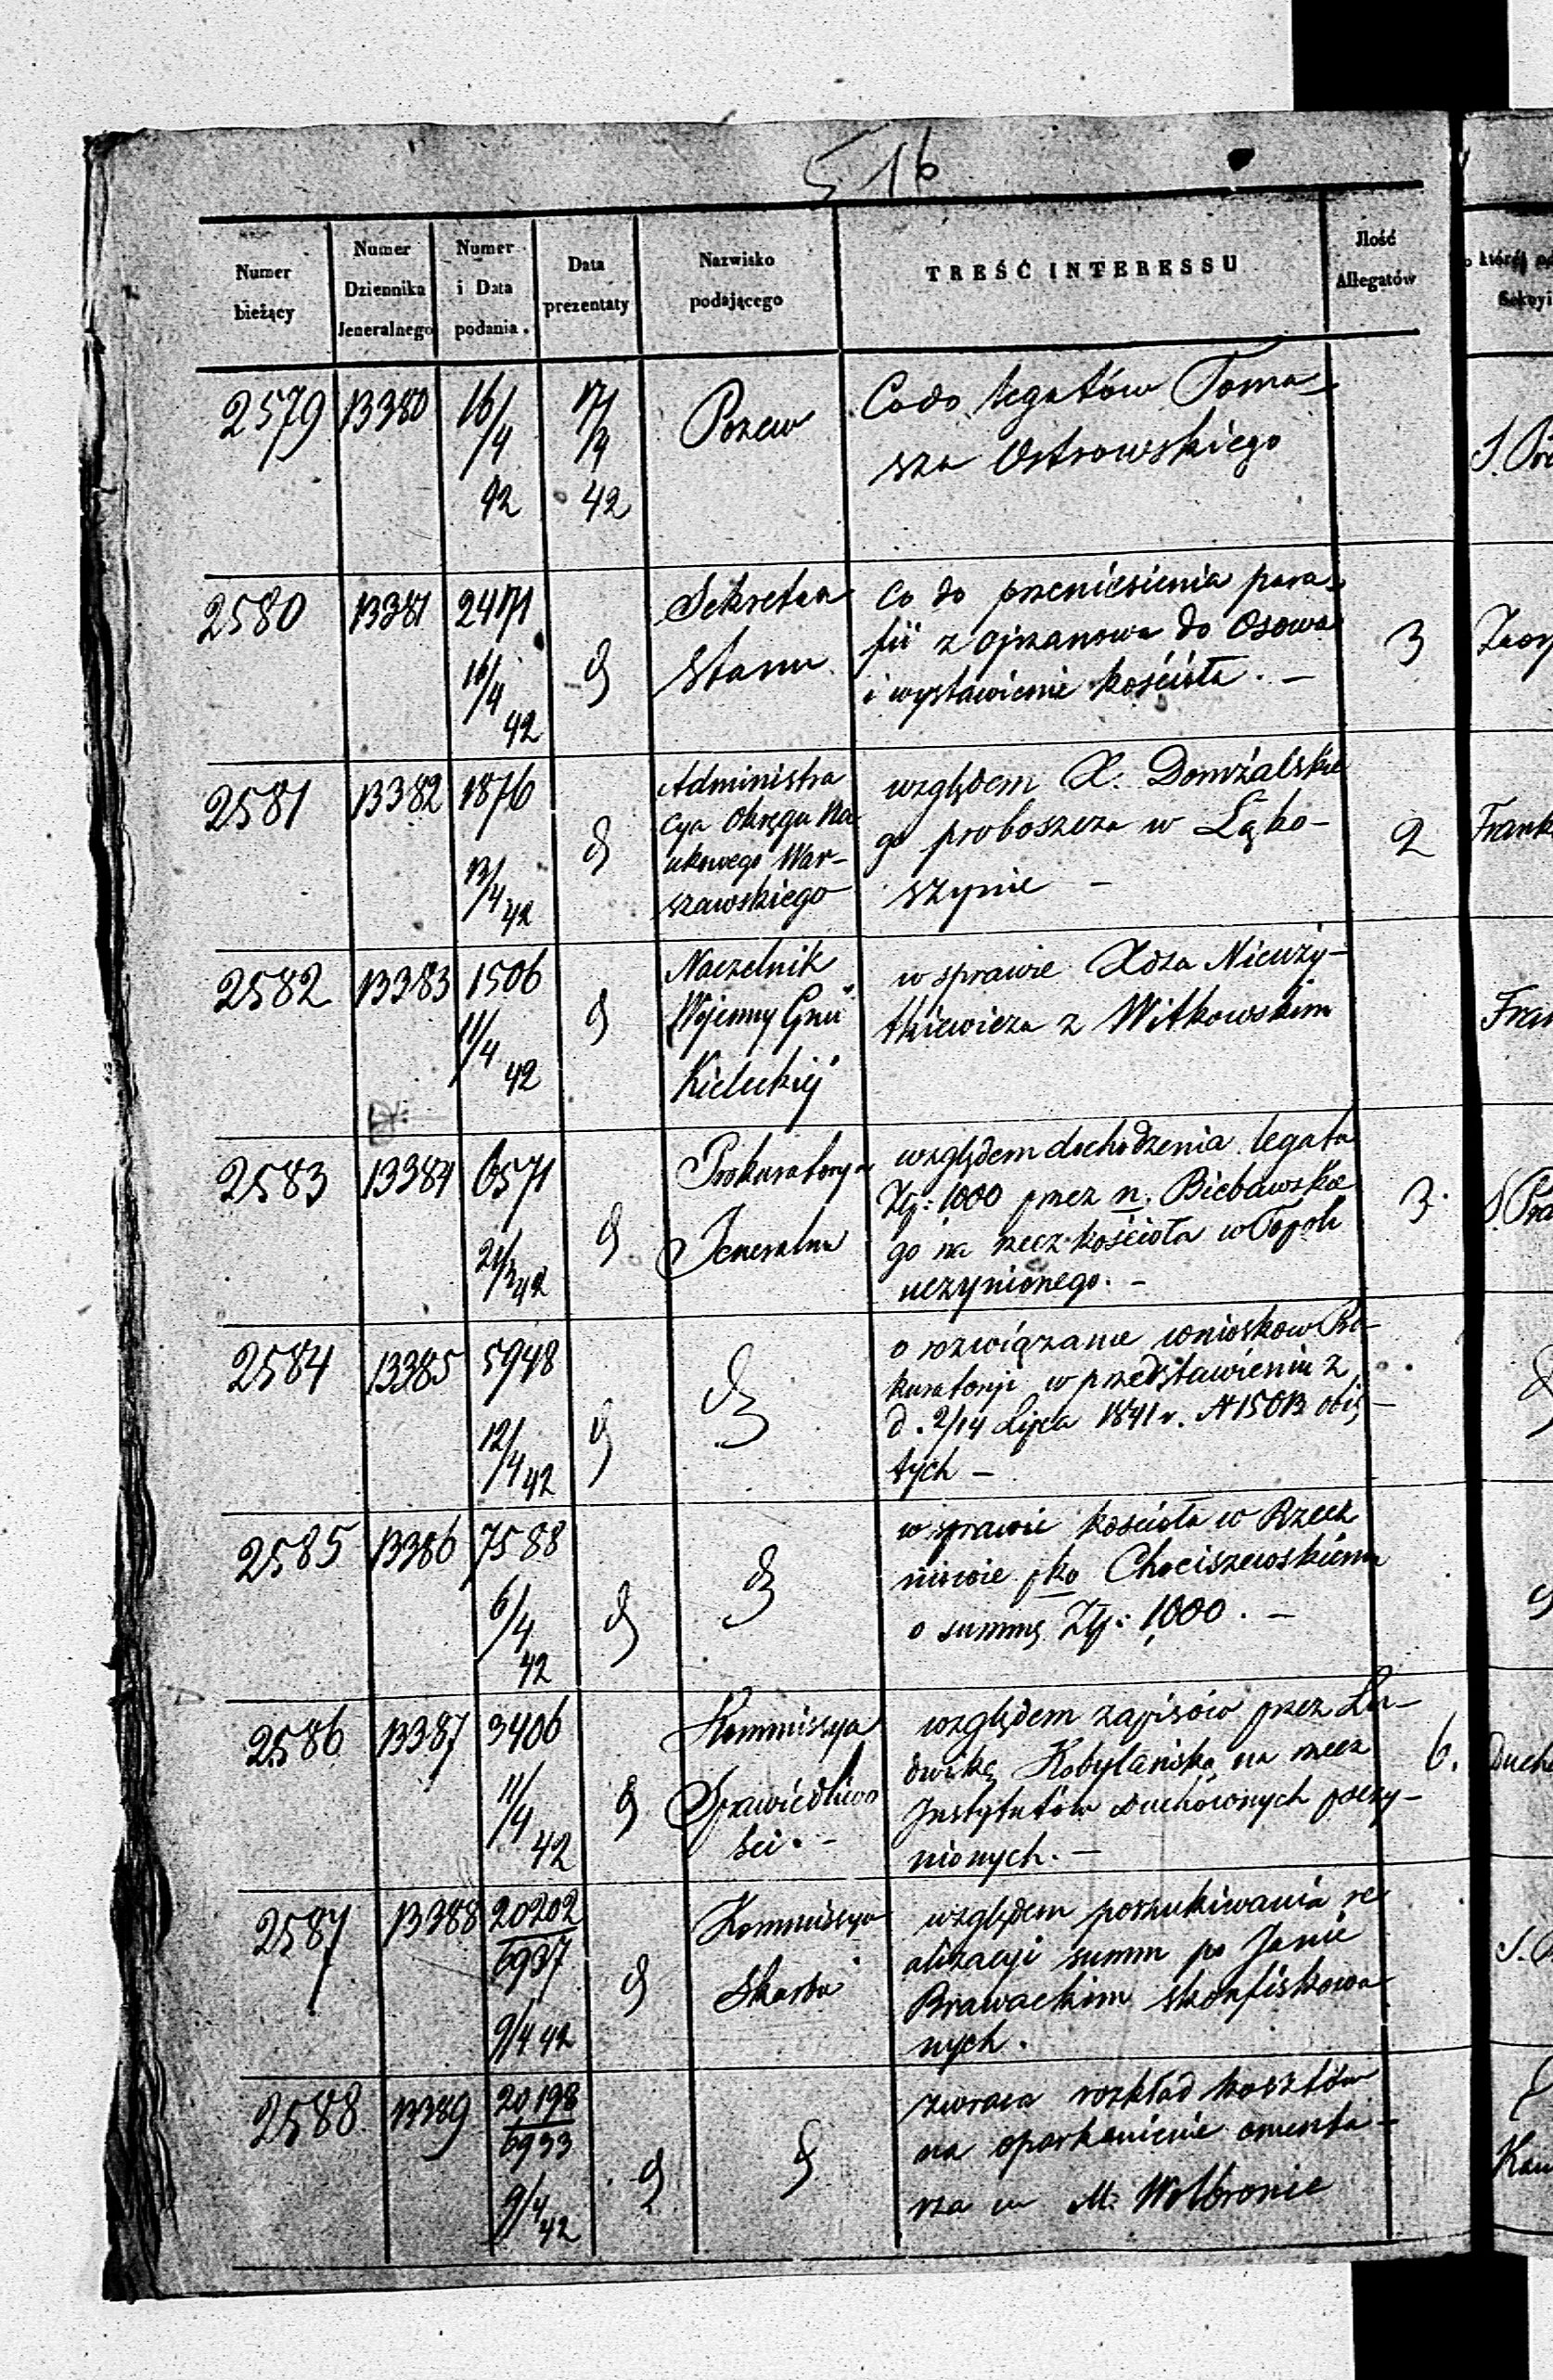 516
Numer bieżący
Numer Dziennika Jeneralnego
Numer i Data podania.
Data prezentaty
Nazwisko podającego
TREŚĆ INTERESSU
Ilość Allegatów
2579 13380 16/4 42 17/4 42 Pozew
Co do legatów Toma-
sza Ostrowskiego
2580 13381 2471 16/4 42 d
Sekretar
Stanu
Co do przeniesienia para-
fii z Ojrzanowa do Osowa
i wystawienie kościoła. —
3
2581 13382 1876 13/4 42 d
Administra
cya Okręgu Na
ukowego War-
szawskiego
względem X. Domżalskie
go proboszcza w Łąko-
szynie —
2
2582 13383 1506 11/4 42 d
Naczelnik
Wojenny Gnii
Kieleckiej
w sprawie Xdza Nieuży-
tkiewicza z Witkowskim
2583 13384 6571 21/3 42 d
Prokuratorya
Jeneralna
względem dochodzenia legatu
Złp: 1000 przez n. Biebawskie
go na rzecz kościoła w Topoli
uczynionego. —
3.
2584 13385 5948 12/4 42 d d
o rozwiązanie wniosków Pro-
kuratoryi w przedstawieniu z
d. 2/14 Lipca 1841 r. N 15013 obię-
tych —
2585 13386 7588 6/4 42 d d
w sprawie kościoła w Rzecz
niowie pko Chociszewskiemu
o summę Złp: 1000. —
2586 13387 3406 11/4 42 d
Kommissya
Sprawiedliwo
ści. —
względem zapisów przez Lu-
dwikę Kobylańską na rzecz
Instytutów Duchownych poczy-
nionych. —
6.
2587 13388 20202/6937 9/4 42 d
Kommissya
Skarbu
względem poszukiwania re
alizacyi summ po Janie
Brawackim skonfiskowa
nych.
2588 13389 20,198/6933 9/4 42 d d
zwraca rozkład kosztów
na oparkanienie cmenta-
rza w M. Wolbromie